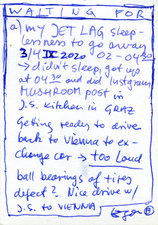 WAITING FOR
a) my JET LAG sleep-
lessness to go away
3/4 III 2020 - 02 - 04 30
→ didn't sleep, got up
at 04 30 and did Instagram
MUSHROOM post in
J.S. kitchen in GRAZ
Getting ready to drive
back to Vienna to ex-
change car → too loud
ball bearings of tires
defect? Nice drive w/
J.S. to VIENNA